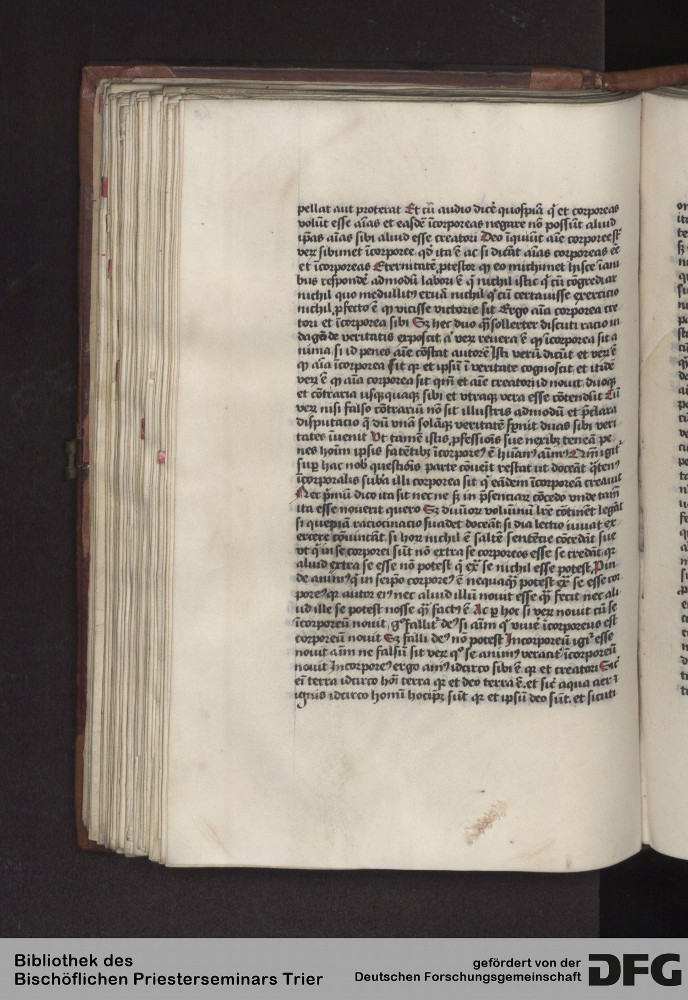 pellat aut proterat Et cū audio dicē quospiā qͥ et corporeas
volūt esse aīas et easdē īcorporeas negare nō possūt aliud
ip̄as aīas sibi aliud esse creatori Deo īquiūt aūt corporee sūt
verͦ sibimet īcorporee qd ita ē ac si dicāt aīas corporeas eē
et īcorporeas Eternitatē ꝓtestor
bus respondē admodū labori ē qͥ nichil istic qͥ cū cōgrediar
nichil quo medullitꝰ eruā nichil qͥ cū certavisse exercitio
nichil ꝓfecto ē qͥ vicisse victorie sit Ergo aīa corporea cre
tori et īcorporea sibi Sꝫ hec duo sollerter discuti racio in
dagāde veritatis exposcit verͦ revera ē īcorporea sit a
nima si id penes aūt cōstat autorē Isti verū dicūt et verͦ ē
aīa īcorporea sit et ipsū ī veritate cognoscit et itidē
verͦ ē aīa corporea sit et aūt creatori id novit duoqꝫ
et cōtraria usqꝫquaqꝫ sibi et utraqꝫ vera esse cōtendūt Cū
verͦ nisi falso cōtrariū nō sit illustris admodū et p̄clara
disputacio dū unā solāqꝫ veritatē duas sibi veri
tates īvenit Ut tamē istis ꝓfessiōis sue nexibꝫ teneā pe
nes hoīm ipsis fatētibꝫ īcorporeꝰ ē hūanꝰ aīmꝰ igitͬ
suꝑ hac nob questiōis parte cōveit restat ut doceāt qͣtenꝰ
īcorporalis suba illi corporea sit eādem īcorporeā creavit
Nec p̄mū dico ita sit nec ne sꝫ in p̄senciaꝝ cōcedo unde tam̄
ita esse noverit quero Sꝫ divioꝝ volumīnū lr̄e cōtinēt legāt
si quepiā raciocinacio suadet doceāt si dialectio iuvat ex
ercere cōvincāt si hoꝝ nichil ē saltē sentētie cōcedāt sue
ut in se corporei sūt nō extra se corporeos esse se credāt
aliud extra se esse nō potest qͥ ex se nichil esse potest Pin
de animꝰ qͥ in seipo corporeꝰ ē nequaqͣ potest ex se esse cor
poreꝰ autor eiꝰ nec aliud illū novit esse qͣ fecit nec ali
ud ille se potest nosse qͣ factꝰ ē Ac ꝑ hoc si verͦ novit cū se
īcorporeū novit gͦ fallitͬ deꝰ si aīm vivē īcorporeus est
corporeū novit Sꝫ falli deꝰ nō potest Incorporeū igitͬ esse
novit aīm ne falsū sit verͦ qͦ se animꝰ veracitͬ īcorporeū
novit Incorporeꝰ ergo aimꝰ idcirco sibi ē et creatori Sicͭ
eī terra idcirco hoī terra et deo terra ē et sicͭ aqua aer ⁊
ignis idcirco homī hocipꝫ sūt et ipsū deo sūt et sicuti
Bibliothek des
Bischöflichen Priesterseminars Trier
gefördert von der
Deutschen Forschungsgemeinschaft
DFG